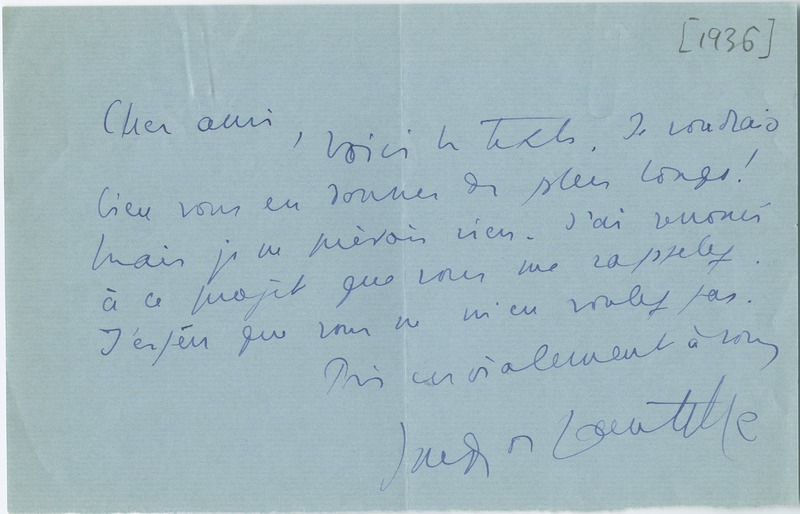 [1936]
Cher ami, voici le texte. Je voudrais
bien vous en donner de plus longs!
Mais je ne prévois rien. J'ai renoncé
à ce projet que vous me rappelez.
J'espère que vous ne m'en voulez pas.
Très cordialement à vous